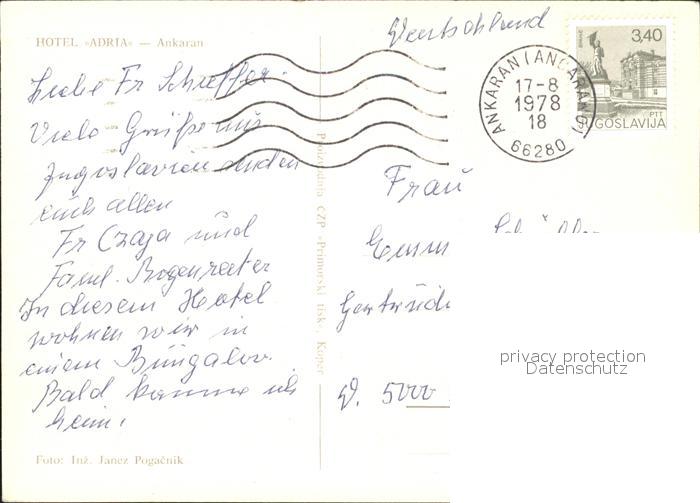 HOTEL »ADRIA« — Ankaran
Liebe Fr Scheffer.
Viele Grüße aus
Jugoslavien senden
euch allen
Fr Czaja und
Faml. Bogenreter
In diesem Hotel
wohnen wir in
einem Bungalov.
Bald komme ich
heim.
Foto: Inž. Janez Pogačnik
Proizvodnja ČZP »Primorski tisk«, Koper
Deutschland
ANKARAN (ANCARANO)
17-8
1978
18
66280
3,40
PTT
JUGOSLAVIJA
Frau
D. 5000
privacy protection
Datenschutz